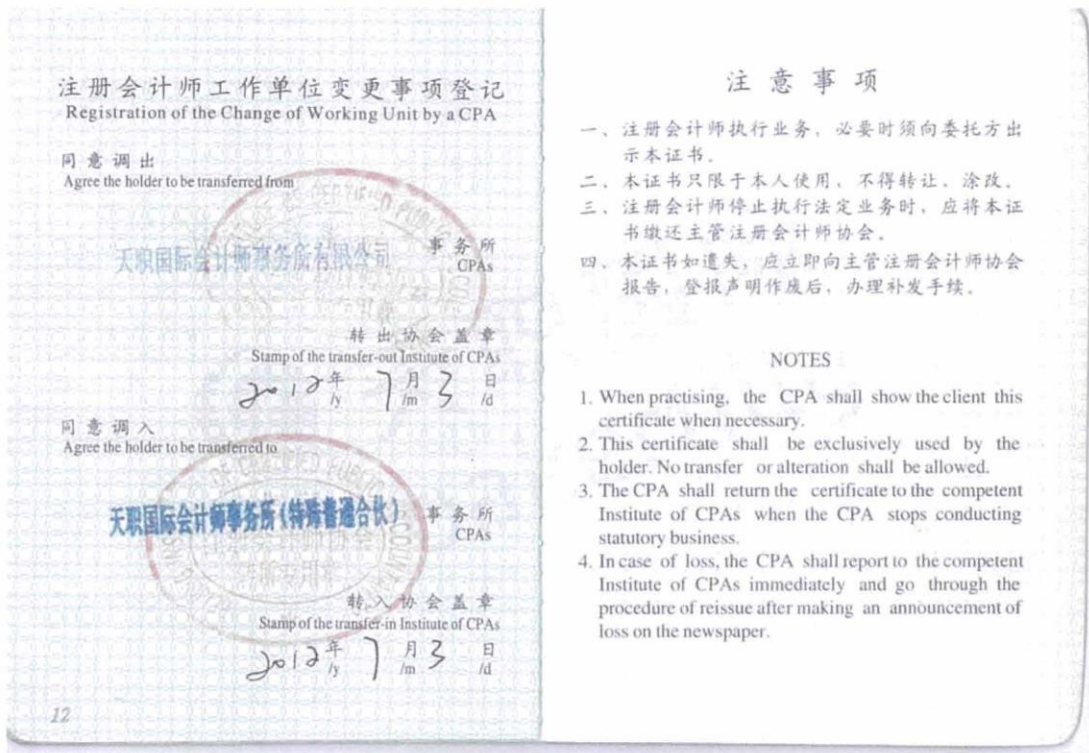 注册会计师工作单位变更事项登记
Registration of the Change of Working Unit by a CPA
同意调出
Agree the holder to be transferred from
天职国际会计师事务所有限公司
事务所
CPAs
转出协会盖章
Stamp of the transfer-out Institute of CPAs
2012年 7月 3日
/y /m /d
同意调入
Agree the holder to be transferred to
天职国际会计师事务所（特殊普通合伙）
事务所
CPAs
转入协会盖章
Stamp of the transfer-in Institute of CPAs
2012年 7月 3日
/y /m /d
12
注意事项
一、注册会计师执行业务，必要时须向委托方出
示本证书。
二、本证书只限于本人使用，不得转让、涂改。
三、注册会计师停止执行法定业务时，应将本证
书缴还主管注册会计师协会。
四、本证书如遗失，应立即向主管注册会计师协会
报告，登报声明作废后，办理补发手续。
NOTES
1. When practising, the CPA shall show the client this
certificate when necessary.
2. This certificate shall be exclusively used by the
holder. No transfer or alteration shall be allowed.
3. The CPA shall return the certificate to the competent
Institute of CPAs when the CPA stops conducting
statutory business.
4. In case of loss, the CPA shall report to the competent
Institute of CPAs immediately and go through the
procedure of reissue after making an announcement of
loss on the newspaper.